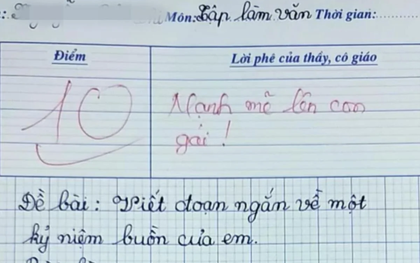 Môn: Tập làm văn Thời gian:
Điểm
Lời phê của thầy, cô giáo
10
Mạnh mẽ lên con
gái!
Đề bài: Viết đoạn ngắn về một
kỷ niệm buồn của em.